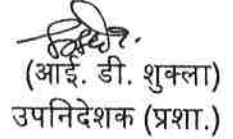 (आई. डी. शुक्ला)
उपनिदेशक (प्रशा.)